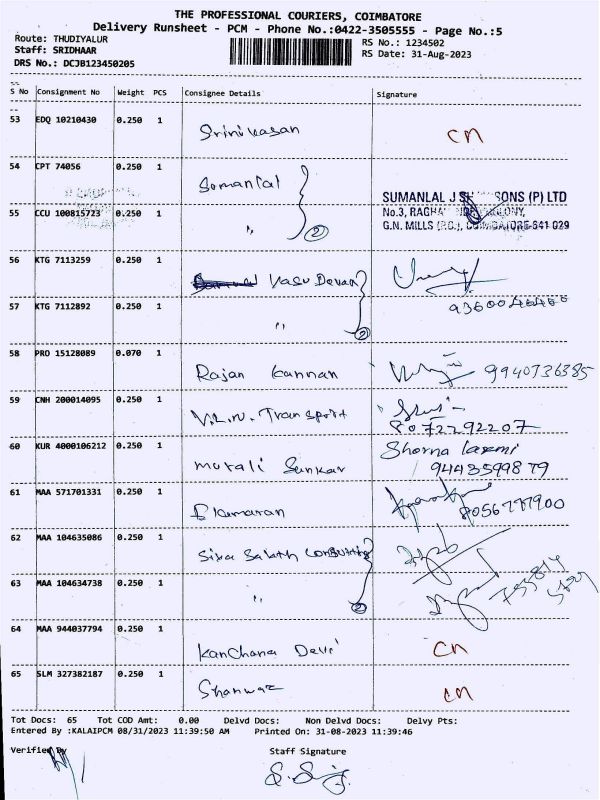 THE PROFESSIONAL COURIERS, COIMBATORE
Delivery Runsheet - PCM - Phone No.:0422-3505555 - Page No.:5
Route: THUDIYALUR
Staff: SRIDHAAR
RS No.: 1234502
RS Date: 31-Aug-2023
DRS No.: DCJB123450205
S No Consignment No Weight PCS Consignee Details Signature
53 EDQ 10210430 0.250 1 Srinivasan CN
54 CPT 74056 0.250 1 Somanlal
SUMANLAL J SONS (P) LTD
55 CCU 100815723 0.250 1 " 2
No.3,
G.N. MILLS COIMBATORE-641 029
56 KTG 7113259 0.250 1 Vasu Devan
57 KTG 7112892 0.250 1 " 2
58 PRO 15128089 0.070 1 Rajan Kannan 9940736385
59 CNH 200014095 0.250 1 V.L.N. Transport
8072292207
60 KUR 4000106212 0.250 1 Murali Sankar Shorna laxmi
9443599879
61 MAA 571701331 0.250 1 Elamaran 8056777900
62 MAA 104635086 0.250 1 Siva Sakthi
63 MAA 104634738 0.250 1 " 2
64 MAA 944037794 0.250 1 Kanchana Devi CN
65 SLM 327382187 0.250 1 Shanwaz CN
Tot Docs: 65 Tot COD Amt: 0.00 Delvd Docs: Non Delvd Docs: Delvy Pts:
Entered By :KALAIPCM 08/31/2023 11:39:50 AM Printed On: 31-08-2023 11:39:46
Verified By Staff Signature